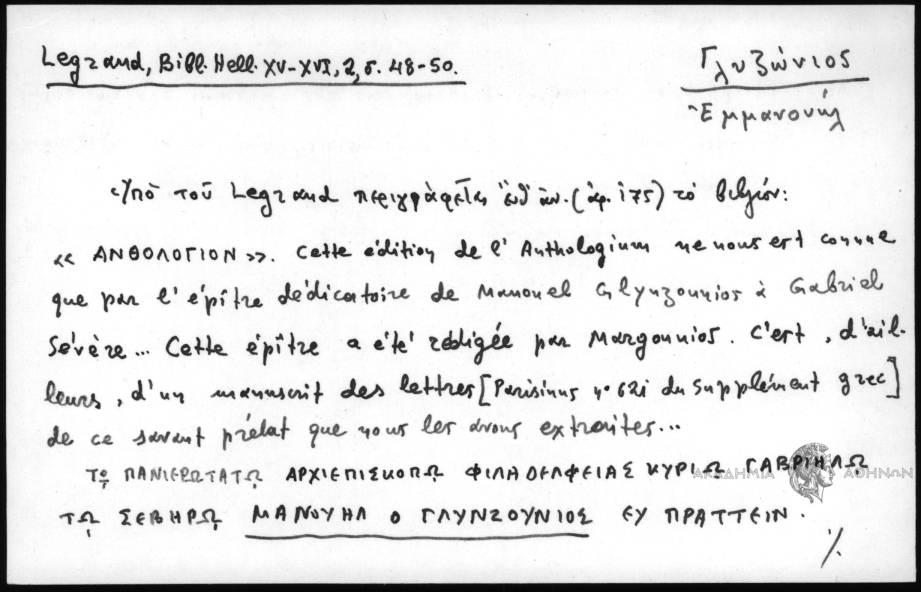 Legrand, Bibl. Hell. XV-XVI, 2, σ. 48-50.
Γλυζώνιος
Ἐμμανουήλ
Ὑπὸ τοῦ Legrand περιγράφεται ἐνθ' ἀν. (ἀρ. 175) τὸ βιβλίον:
« ΑΝΘΟΛΟΓΙΟΝ ». Cette édition de l'Anthologium ne nous est connue
que par l'épître dédicatoire de Manouel Glynzounios à Gabriel
Sévère... Cette épître a été rédigée par Margounios. C'est, d'ail-
leurs, d'un manuscrit des lettres [Parisinus nº 621 du Supplément grec]
de ce savant prélat que nous les avons extraites...
Τῼ ΠΑΝΙΕΡΩΤΑΤῼ ΑΡΧΙΕΠΙΣΚΟΠῼ ΦΙΛΑΔΕΛΦΕΙΑΣ ΚΥΡΙῼ ΓΑΒΡΙΗΛῼ
Τῼ ΣΕΒΗΡῼ ΜΑΝΟΥΗΛ Ο ΓΛΥΝΖΟΥΝΙΟΣ ΕΥ ΠΡΑΤΤΕΙΝ.
./.
ΑΚΑΔΗΜΙΑ ΑΘΗΝΩΝ